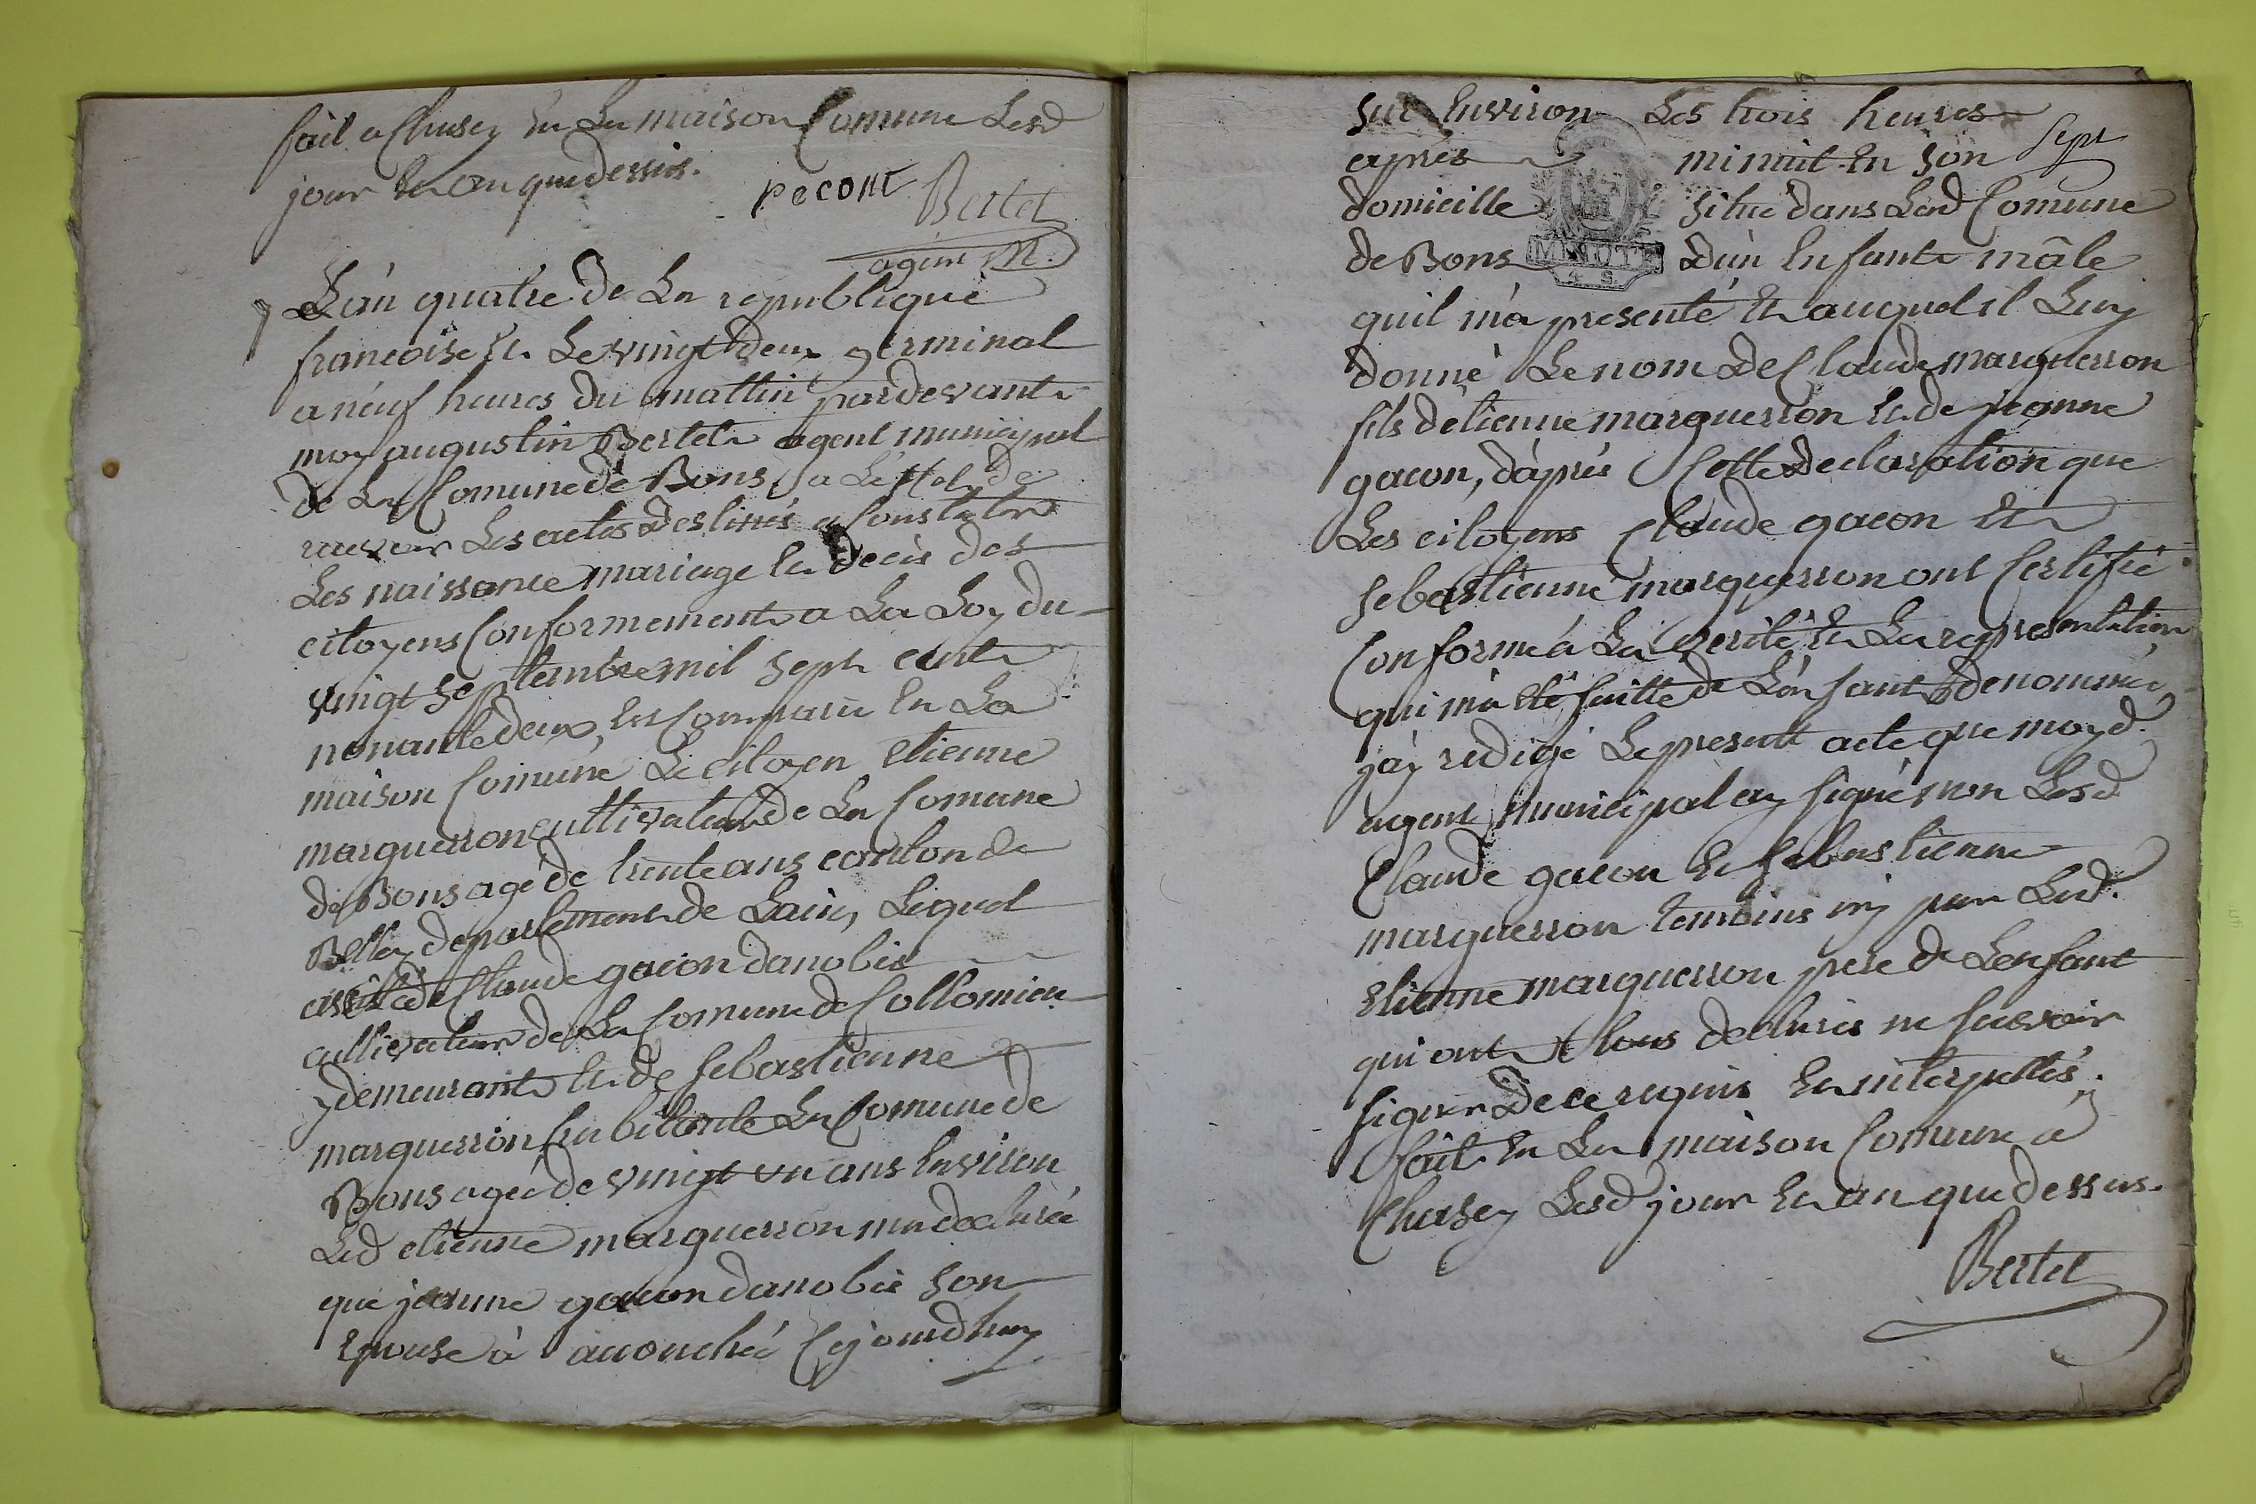 fait a Chasey en La maison Comune Lesd
jour et an que dessus.
pecont Bertet
agent m.
L'an quatre de La republique
francoise et Le vingt deux germinal
a neuf heures du mattin pardevant
moy augustin Bertet agent municipal
de La Comune de Bons a L'effet de
recevoir Les actes destinés a Constater
Les naissance mariage et decès des
citoyens Conformement a La Loy du
vingt septembre mil sept cent
nonante deux, est comparu en La
maison Comune Le citoyen etienne
marguerron cultivateur de La Comune
de Bons agé de trente ans canton de
Belley departement de Lain, Lequel
assisté de Claude gacon danobie
cultivateur de La Comune de Collomieu
y demeurant et de sebastienne
marguerron habitante La Comune de
Bons agée de vingt un ans environ
Led etienne marguerron ma declaré
que jeanne gacon danobie son
epouse à accouché cejourdhuy
sur environ Les trois heures
après minuit en son sept
domicille situé dans Lad Comune
MINUTE
4 S.
de Bons d'un enfant mâle
quil m'a presenté et auquel il Luy
donné Le nom de Claude marguerron
fils d'etienne marguerron et de jeanne
gacon, d'après Cette declaration que
Les citoyens Claude gacon et
sebastienne marguerron ont Certifié
Conforme à La verité et La representation
qui m'a été faitte de L'enfant denommé,
j'ay redigé Le present acte que moy d.
agent municipal ay signé non Lesd
Claude gacon et sebastienne
marguerron temoins ny par Led.
etienne marguerron pere de Lenfant
qui ont tous declarés ne scavoir
signer de ce requis et interpellés.
fait en La maison Comune a
Chasey Lesd jour et an que dessus.
Bertet